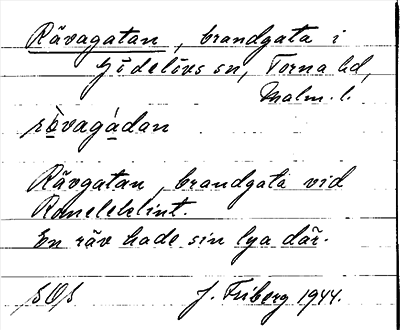 Rävagatan, brandgata i
Gödelövs sn, Torna hd,
Malm. l.
rò̱vagá̱dan
Rävgatan, brandgata vid
Romeleklint.
En räv hade sin lya där.
SOS J. Friberg 1944.